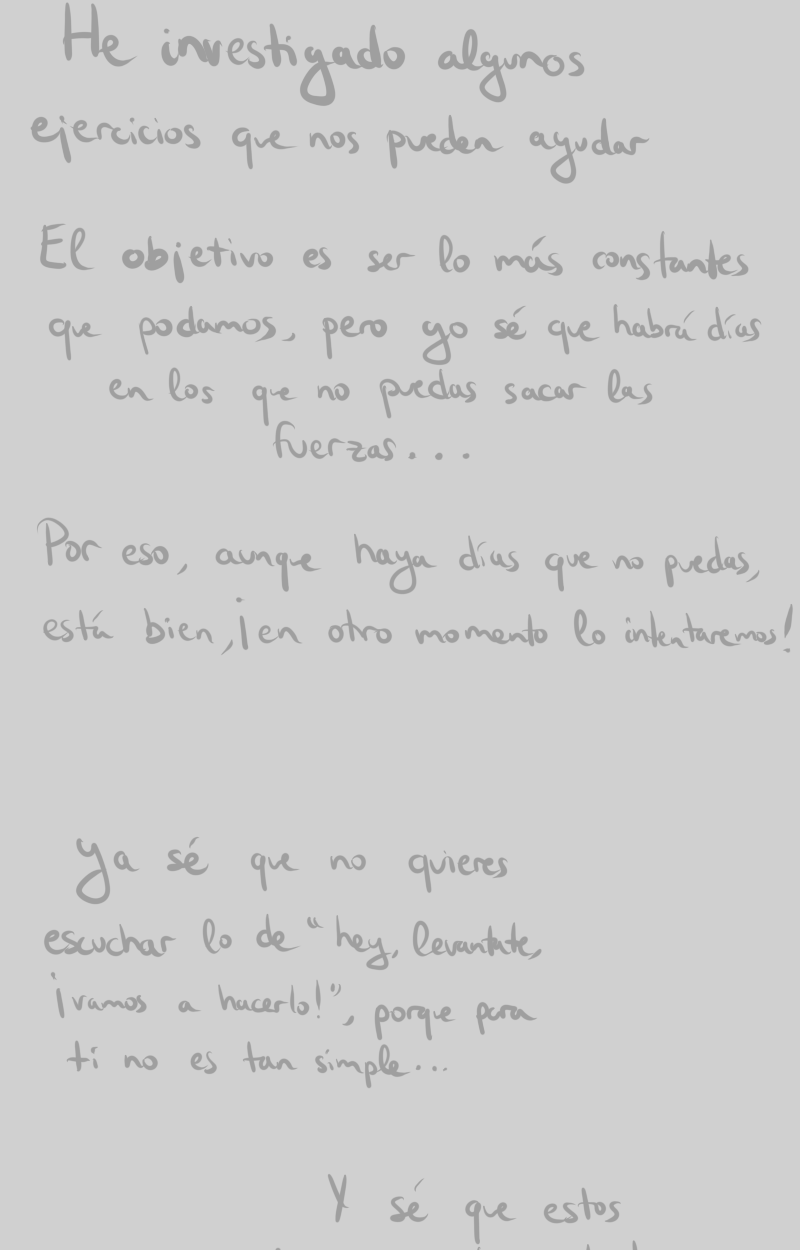 He investigado algunos
ejercicios que nos pueden ayudar
El objetivo es ser lo más constantes
que podamos, pero yo sé que habrá días
en los que no puedas sacar las
fuerzas...
Por eso, aunque haya días que no puedas,
está bien, ¡en otro momento lo intentaremos!
Ya sé que no quieres
escuchar lo de "hey, levantate,
¡vamos a hacerlo!", porque para
ti no es tan simple...
Y sé que estos